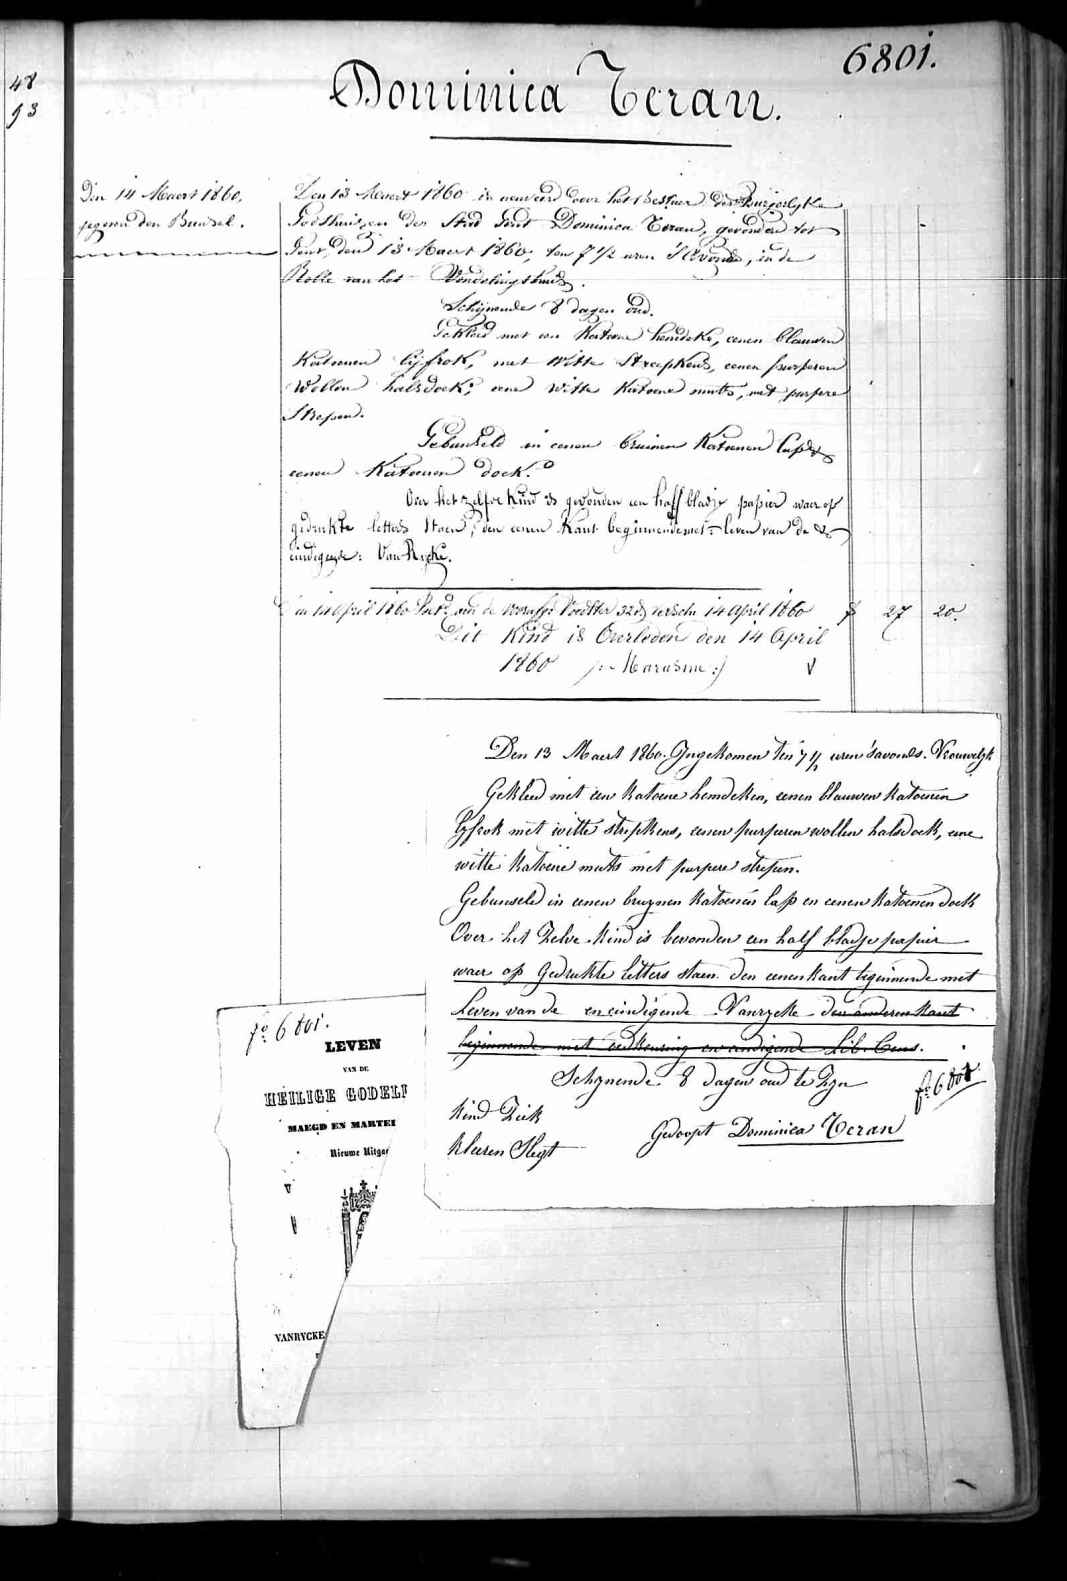 48
93
6801.
Dominica Teran.
Den 14 Maert 1860,
gegeven den Bundsel.
Den 13 Maert 1860 is aenveerd door het Bestuer der Burgerlyke
Godshuizen der Stad Gent Dominica Teran, gevonden tot
Gent, den 13 Maert 1860, ten 7 1/2 uren 's avonds, in de
Rolle van het Vondelingshuis.
Schijnende 8 dagen oud.
Gekleed met een Katoene hemdeke, eenen blauwen
Katoenen lyfrok, met witte Streepkens, eenen purperen
Wollen halsdoek, eene witte Katoene muts, met purpere
Strepen.
Gebunseld in eenen bruinen Katoenen Lap &
eenen Katoenen doek.
Over het zelfde Kind is gevonden een half bladje papier waer op
gedrukte letters staen, den eenen Kant beginnende met: leven van de &
eindigende: VanRycke.
14 April 1860 aen de 14 April 1860 f 27 20.
Dit Kind is Overleden den 14 April
1860 Marasme :) V
Den 13 Maert 1860. Ingekomen ten 7 1/2 uren s'avonds. Vrouwelyk
Gekleed met een Katoene hemdeken, eenen blauwen Katoenen
lyfrok met witte strepkens, eenen purperen wollen halsdoek, eene
witte Katoene muts met purpere strepen.
Gebunseld in eenen bruynen Katoenen lap en eenen Katoenen doek
Over het Zelve Kind is bevonden een half bladje papier
waer op Gedrukte Letters staen. den eenen kant beginnende met
Leven van de en eindigende Vanrycke den anderen kant
beginnende met en eindigende Lib. Cens.
Schynende 8 dagen oud te Zyn
fo 6801
Kind Ziek
Gedoopt Dominica Teran
Kleeren Slegt
fo 6801.
LEVEN
VAN DE
HEILIGE GODELI
MAEGD EN MARTEI
Nieuwe Uitgav
VANRYCKE